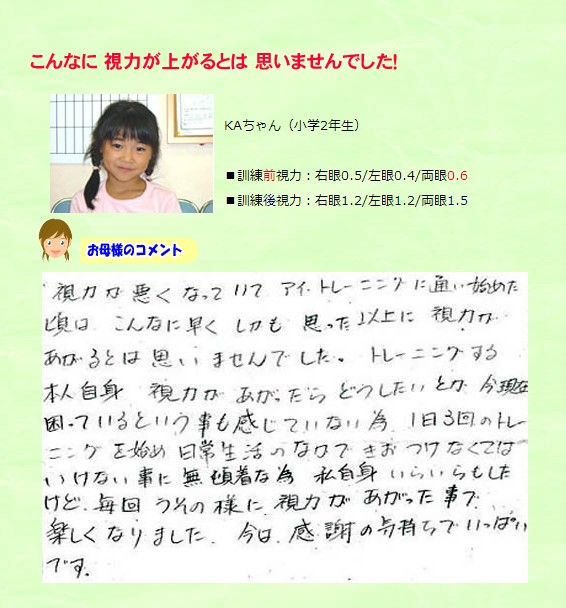 こんなに 視力が上がるとは 思いませんでした!
KAちゃん（小学2年生）
■訓練前視力：右眼0.5/左眼0.4/両眼0.6
■訓練後視力：右眼1.2/左眼1.2/両眼1.5
お母様のコメント
視力が悪くなっていて、アイトレーニングに通い始めた
頃は、こんなに早く しかも 思った以上に 視力が
あがるとは思いませんでした。トレーニングする
本人自身 視力が あがったら どうしたい とか 今現在
困っているという事も感じていない為、1日3回のトレー
ニングを始め 日常生活のなかで きおつけなくては
いけない事に無頓着な為 私自身 いらいらもした
けど、毎回 うその様に、視力が あがった事で
楽しくなりました。今は、感謝の気持ちで いっぱい
です。